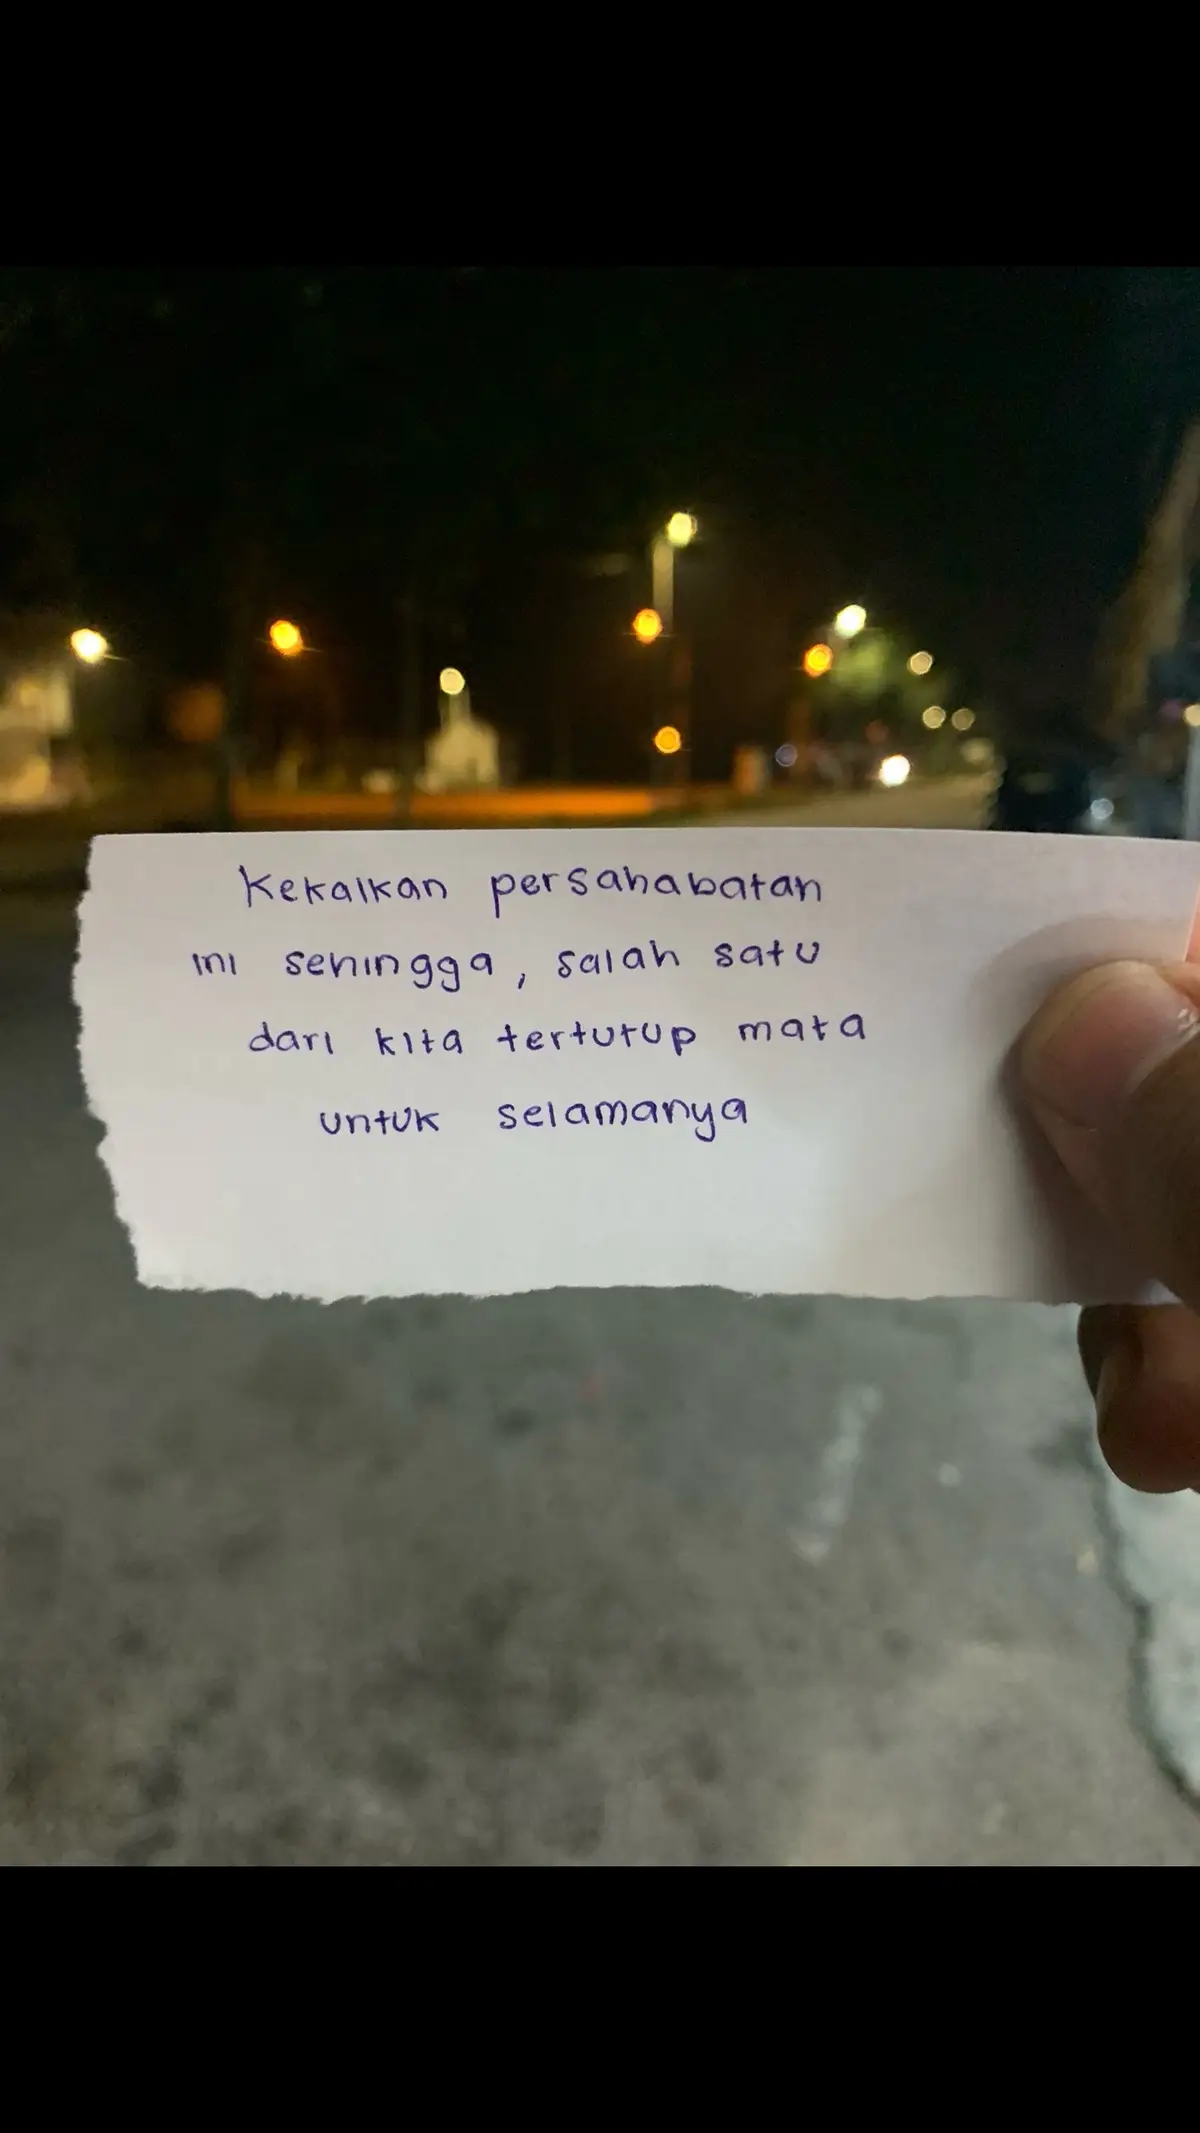 Kekalkan persahabatan
ini sehingga, salah satu
dari kita tertutup mata
untuk selamanya